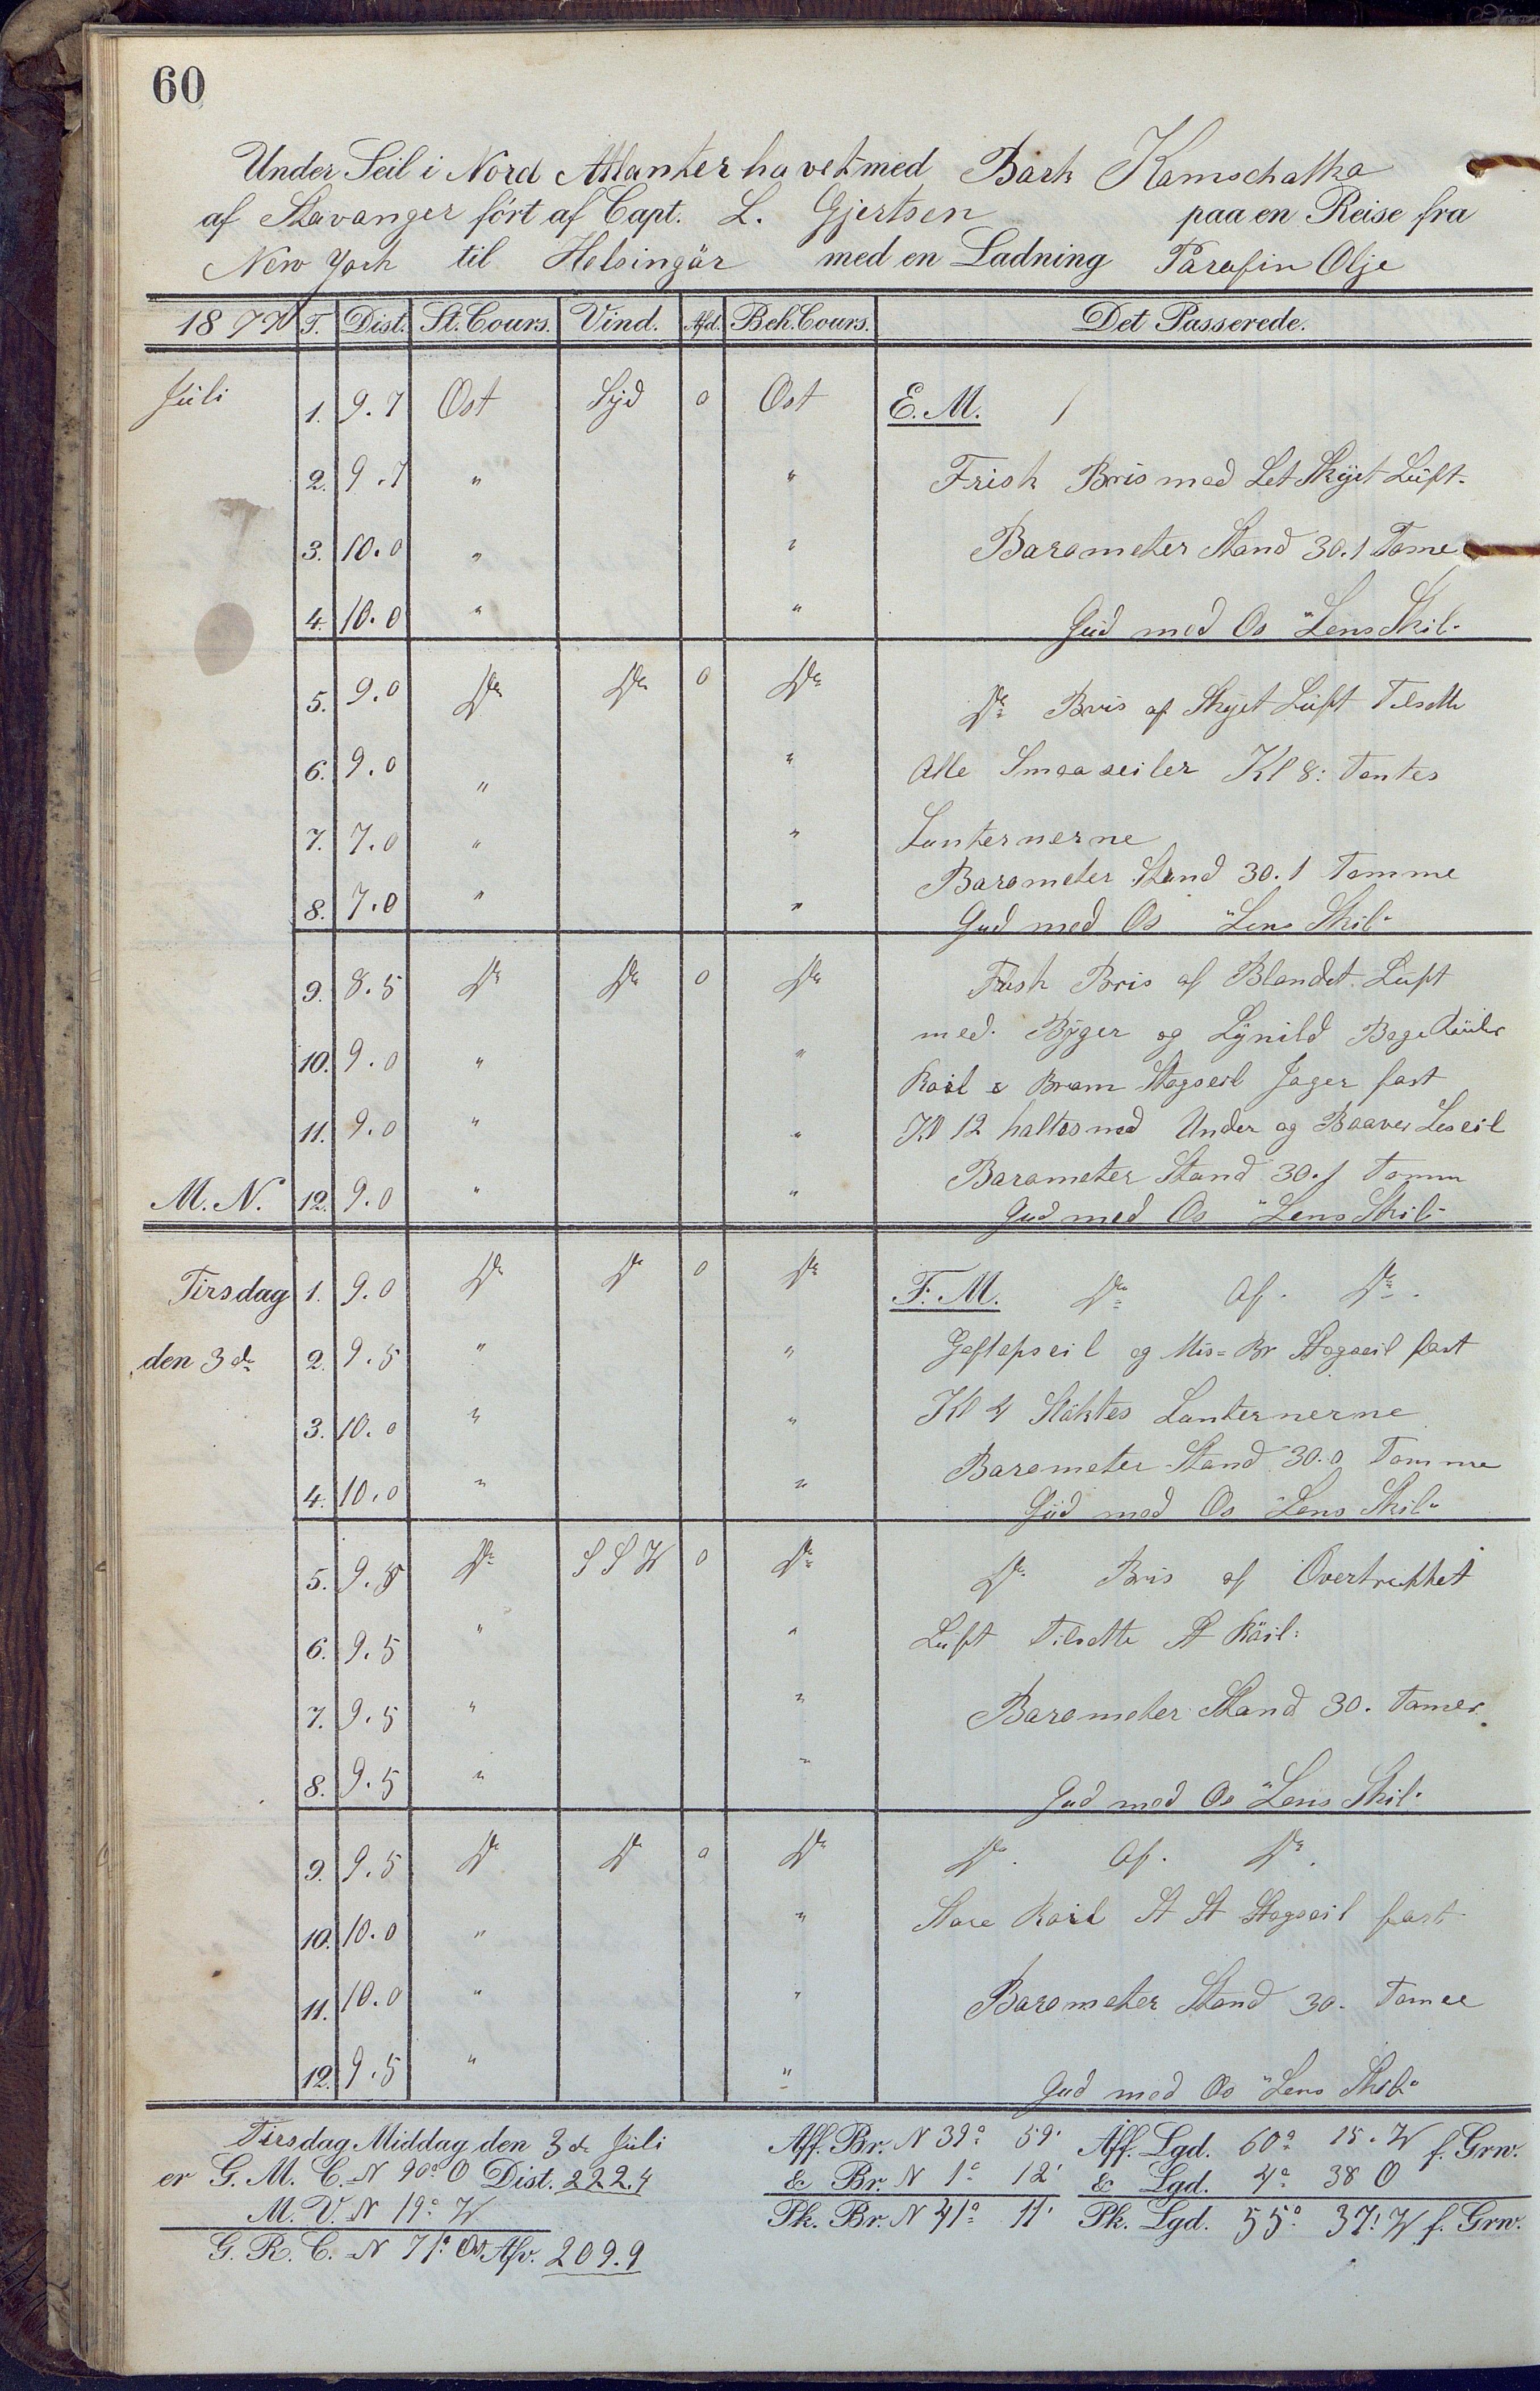 60
Under Seil i Nord Atlanterhavet med Bark Kamschatka
af Stavanger ført af Capt. L. Gjertsen paa en Reise fra
New York til Helsingör med en Ladning Parafin Olje
1877 T. Dist. St. Cours. Vind. Afd. Beh. Cours. Det Passerede.
Júli 1. 9.7 Ost Syd 0 Ost E.M.
2. 9.7 " " Frisk Bris med Let Skyet Lúft.
3. 10.0 " " Barometer Stand 30.1 Tome
4. 10.0 " " Gúd med Os "Lens Skib"
5. 9.0 Do Do 0 Do Do Bris af Skyet Lúft Tilsatte
6. 9.0 " " Alle Smaaseiler Kl 8: Tentes
7. 7.0 " " Lanternerne
Barometer Stand 30.1 Tomme
8. 7.0 " " Gud med Os "Lens Skib"
9. 8.5 Do Do 0 Do Frisk Bris af Blandet Lúft
med Byger og Lynild
10. 9.0 " " Roil & Bram Stagseil Jager fast
11. 9.0 " " Kl 12 haltes med Under og Leseil
Barometer Stand 30.1 Tomm
M.N. 12. 9.0 " " Gud med Os "Lens Skib"
Tirsdag 1. 9.0 Do Do 0 Do F.M. Do Af. Do.
den 3de 2. 9.5 " " Geftopseil og Mis=Br Stagseil fast
3. 10.0 " " Kl 4 Släktes Lanternerne
Barometer Stand 30.0 Tomme
4. 10.0 " " Gúd med Os "Lens Skib"
5. 9.5 Do SSW 0 Do Do Bris af Overtrukket
6. 9.5 " " Lúft Tilsatte St Röil:
7. 9.5 " " Barometer Stand 30. Tomer.
8. 9.5 " " Gud med Os "Lens Skib"
9. 9.5 Do Do 0 Do Do. Af. Do.
10. 10.0 " " Store Roil St St Stagseil fast
11. 10.0 " " Barometer Stand 30. Tomee
12. 9.5 " " Gud med Os "Lens Skib"
Tirsdag Middag den 3de Júli Aff. Br. N 39° 59' Aff. Lgd. 60° 15. W f. Grw.
er G. M. C. N 90° O Dist. 222.4 & Br. N 1° 12' & Lgd. 4° 38 O
M. V. N 19° W Pk. Br. N 41° 11' Pk. Lgd. 55° 37! W f. Grw.
G. R. C. N 71° Os. Afv. 209.9